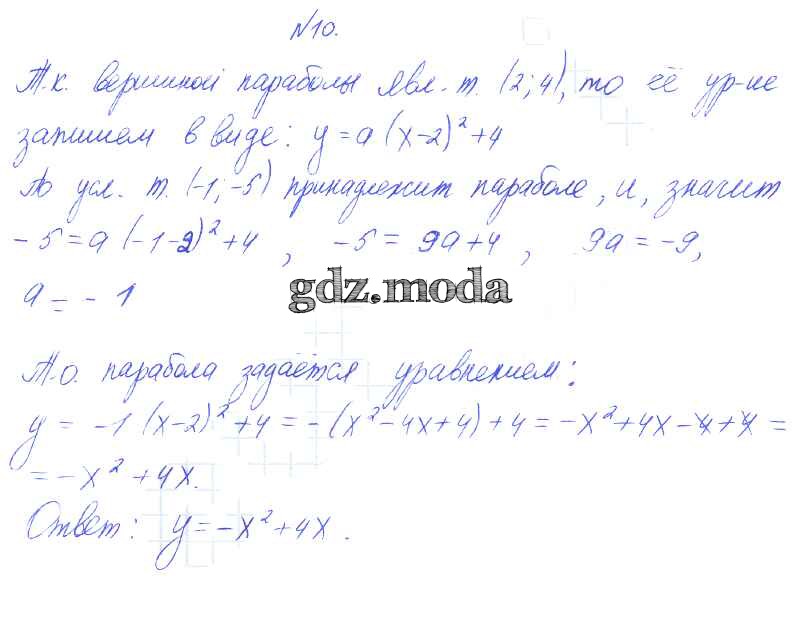 №10.
Т.к. вершиной параболы явл. т. (2; 4), то её ур-ие
запишем в виде: y = a (x-2)² + 4
По усл. т. (-1; -5) принадлежит параболе, и, значит
- 5 = a (-1-2)² + 4 , -5 = 9a + 4 , 9a = -9,
a = - 1
gdz.moda
Т.о. парабола задаётся уравнением:
y = -1 (x-2)² + 4 = - (x² - 4x + 4) + 4 = -x² + 4x - 4 + 4 =
= - x² + 4x.
Ответ: y = -x² + 4x .